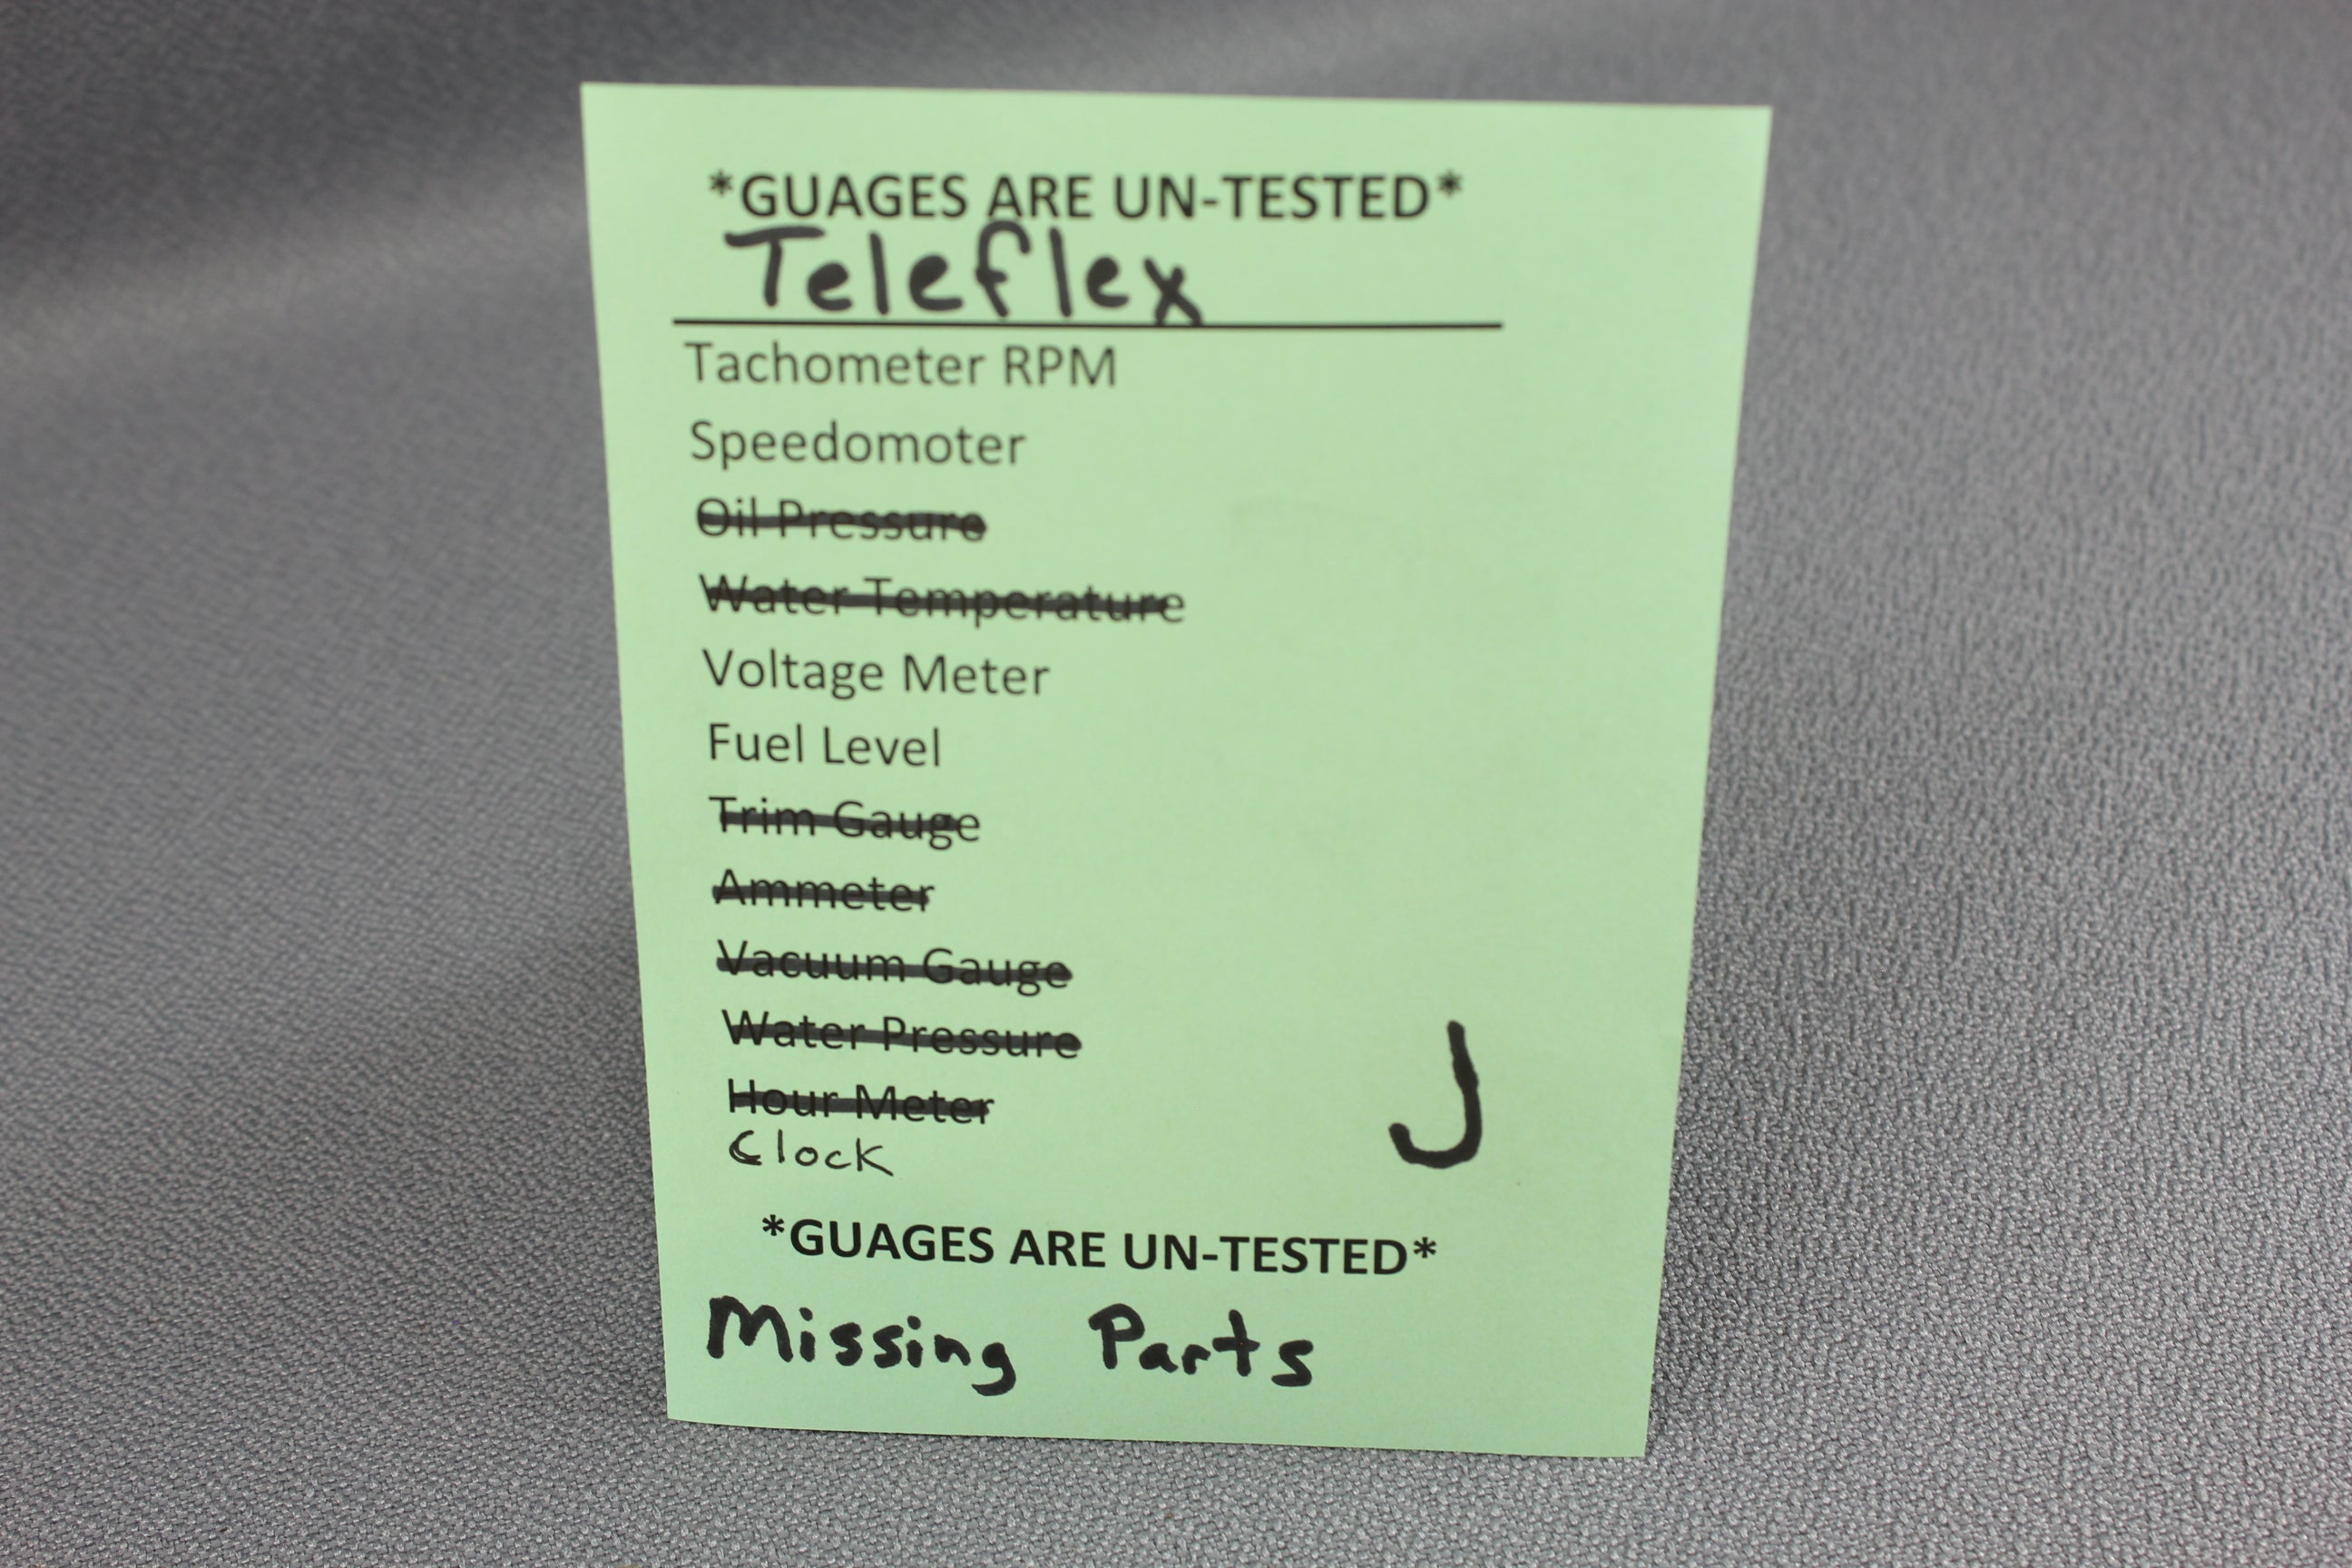 *GUAGES ARE UN-TESTED*
Teleflex
Tachometer RPM
Speedomoter
Oil Pressure
Water Temperature
Voltage Meter
Fuel Level
Trim Gauge
Ammeter
Vacuum Gauge
Water Pressure
Hour Meter
Clock
J
*GUAGES ARE UN-TESTED*
Missing Parts